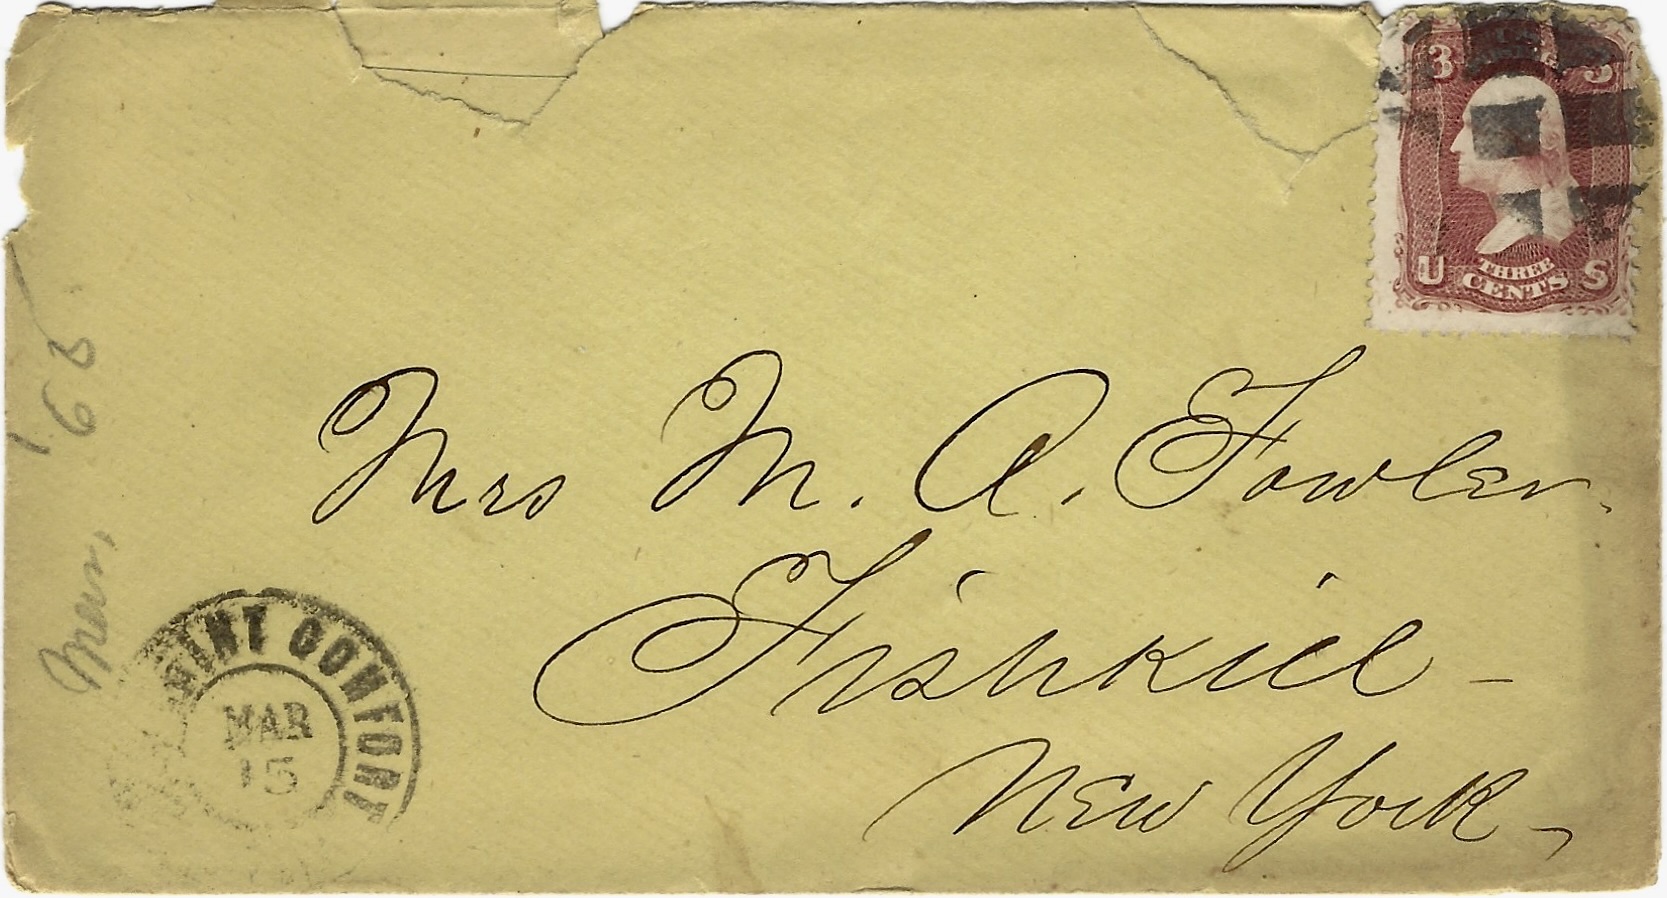 3 3
U THREE CENTS S
Mrs M. A. Fowler.
Fishkill -
New York -
POINT COMFORT
MAR
15